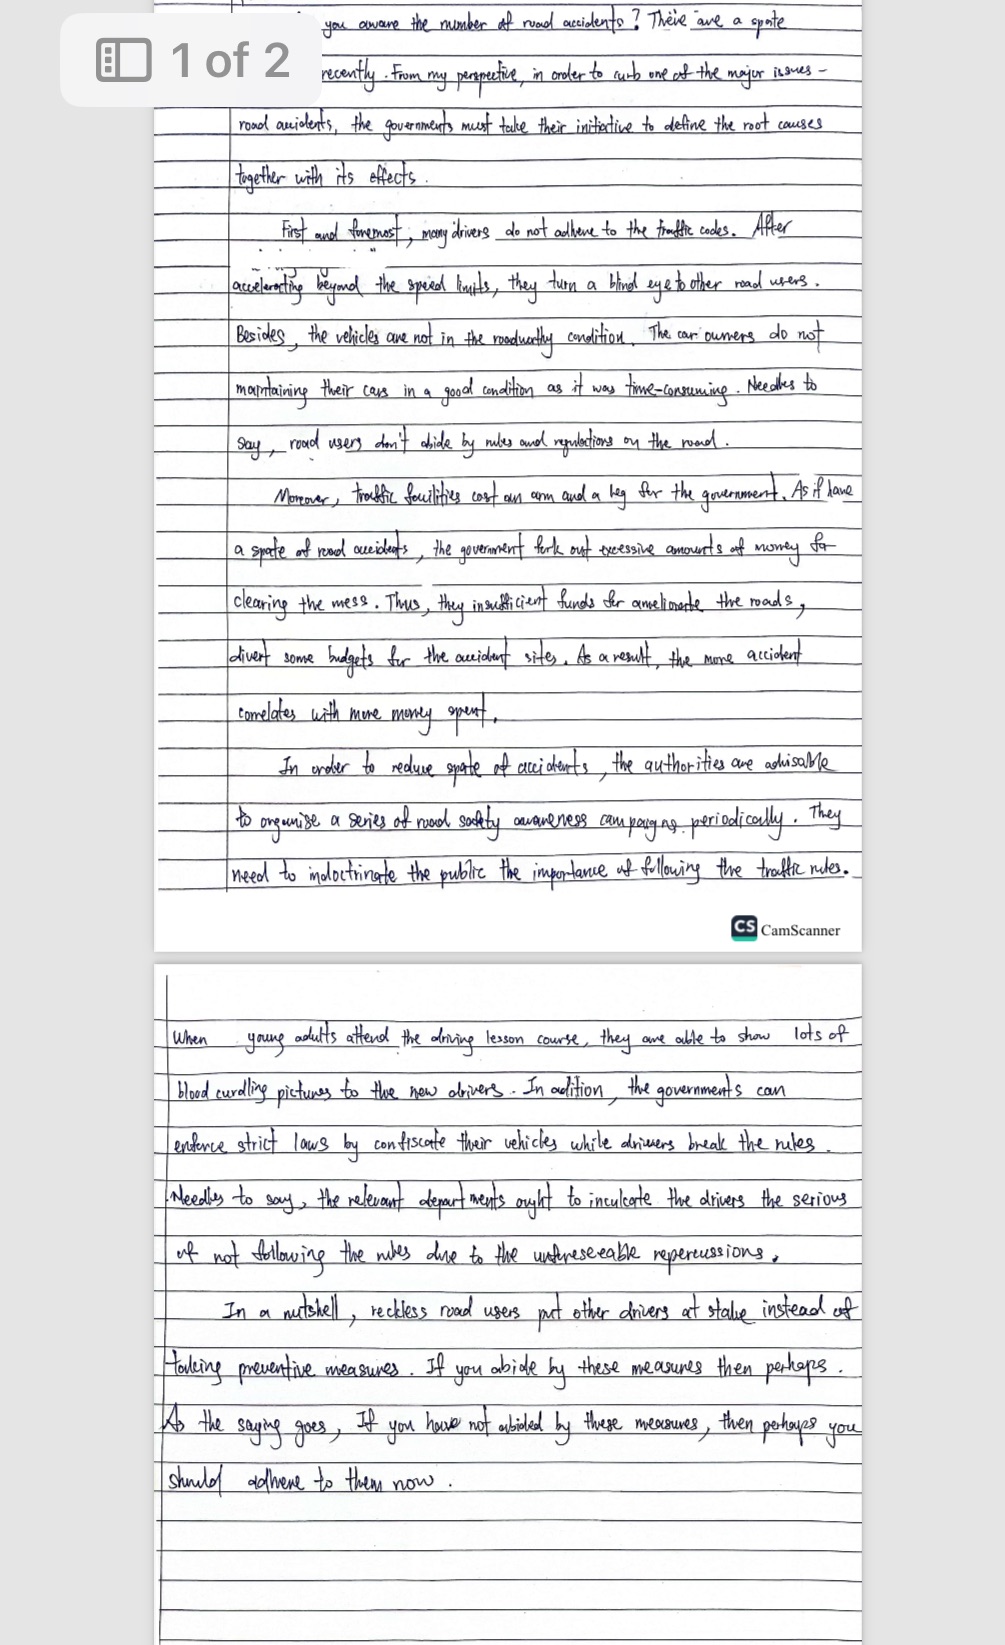 1 of 2
you aware the number of road accidents? There are a spate
recently. From my perspective, in order to curb one of the major issues -
road accidents, the governments must take their initiative to define the root causes
together with its effects.
First and foremost, many drivers do not adhere to the traffic codes. After
accelerating beyond the speed limits, they turn a blind eye to other road users.
Besides, the vehicles are not in the roadworthy condition. The car owners do not
maintaining their cars in a good condition as it was time-consuming. Needles to
say, road users don't abide by rules and regulations on the road.
Moreover, traffic facilities cost an arm and a leg for the government. As if have
a spate of road accidents, the government fork out excessive amounts of money for
clearing the mess. Thus, they insufficient funds for ameliorate the roads,
divert some budgets for the accident sites. As a result, the more accident
correlates with more money spent.
In order to reduce spate of accidents, the authorities are advisable
to organise a series of road safety awareness campaigns periodically. They
need to indoctrinate the public the importance of following the traffic rules.
CS CamScanner
When young adults attend the driving lesson course, they are able to show lots of
blood curdling pictures to the new drivers. In adition, the governments can
enforce strict laws by confiscate their vehicles while drivers break the rules.
Needles to say, the relevant departments ought to inculcate the drivers the serious
of not following the rules due to the unforeseeable repercussions.
In a nutshell, reckless road users put other drivers at stake instead of
taking preventive measures. If you abide by these measures then perhaps.
As the saying goes, If you have not abided by these measures, then perhaps you
should adhere to them now.